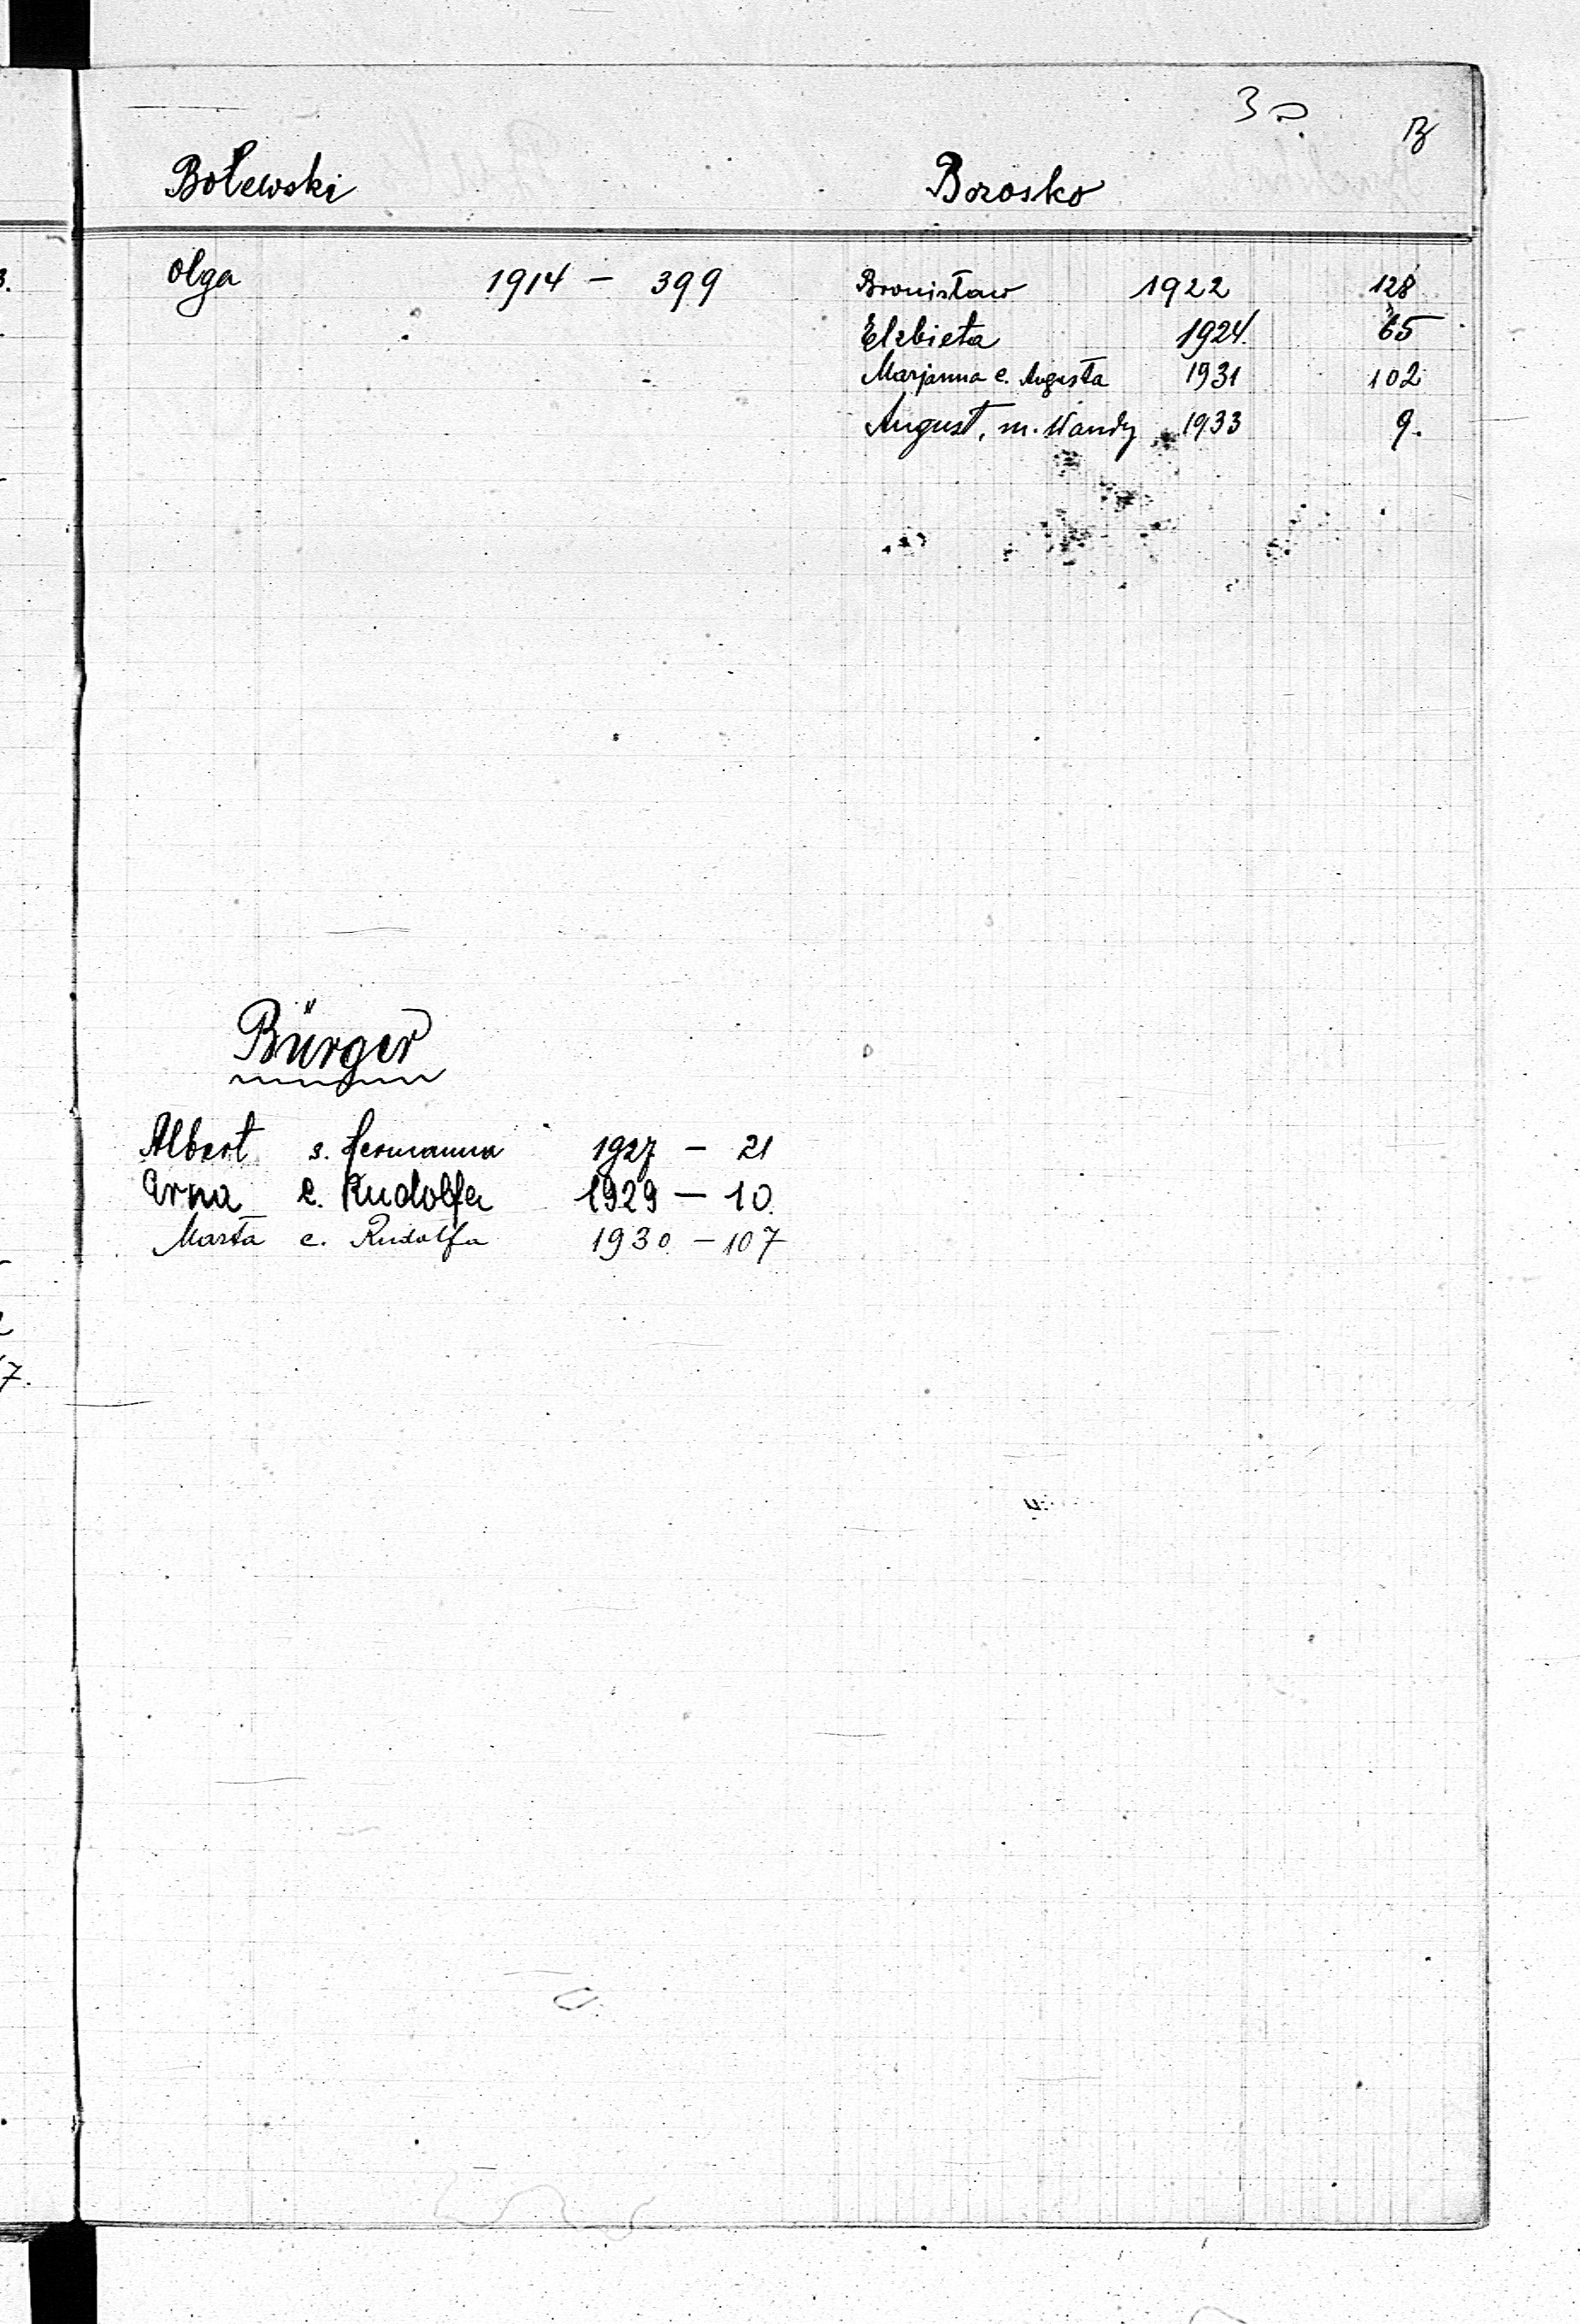 B
Bolewski
Olga 1914 — 399
Borosko
Bronisław 1922 128
Elzbieta 1924. 65
Marjanna c. Augusta 1931 102
August, m. Wandy 1933 9.
Bürger
Albert s. Hermanna 1927 — 21
Erna c. Rudolfa 1929 — 10.
Marta c. Rudolfa 1930 — 107
7.